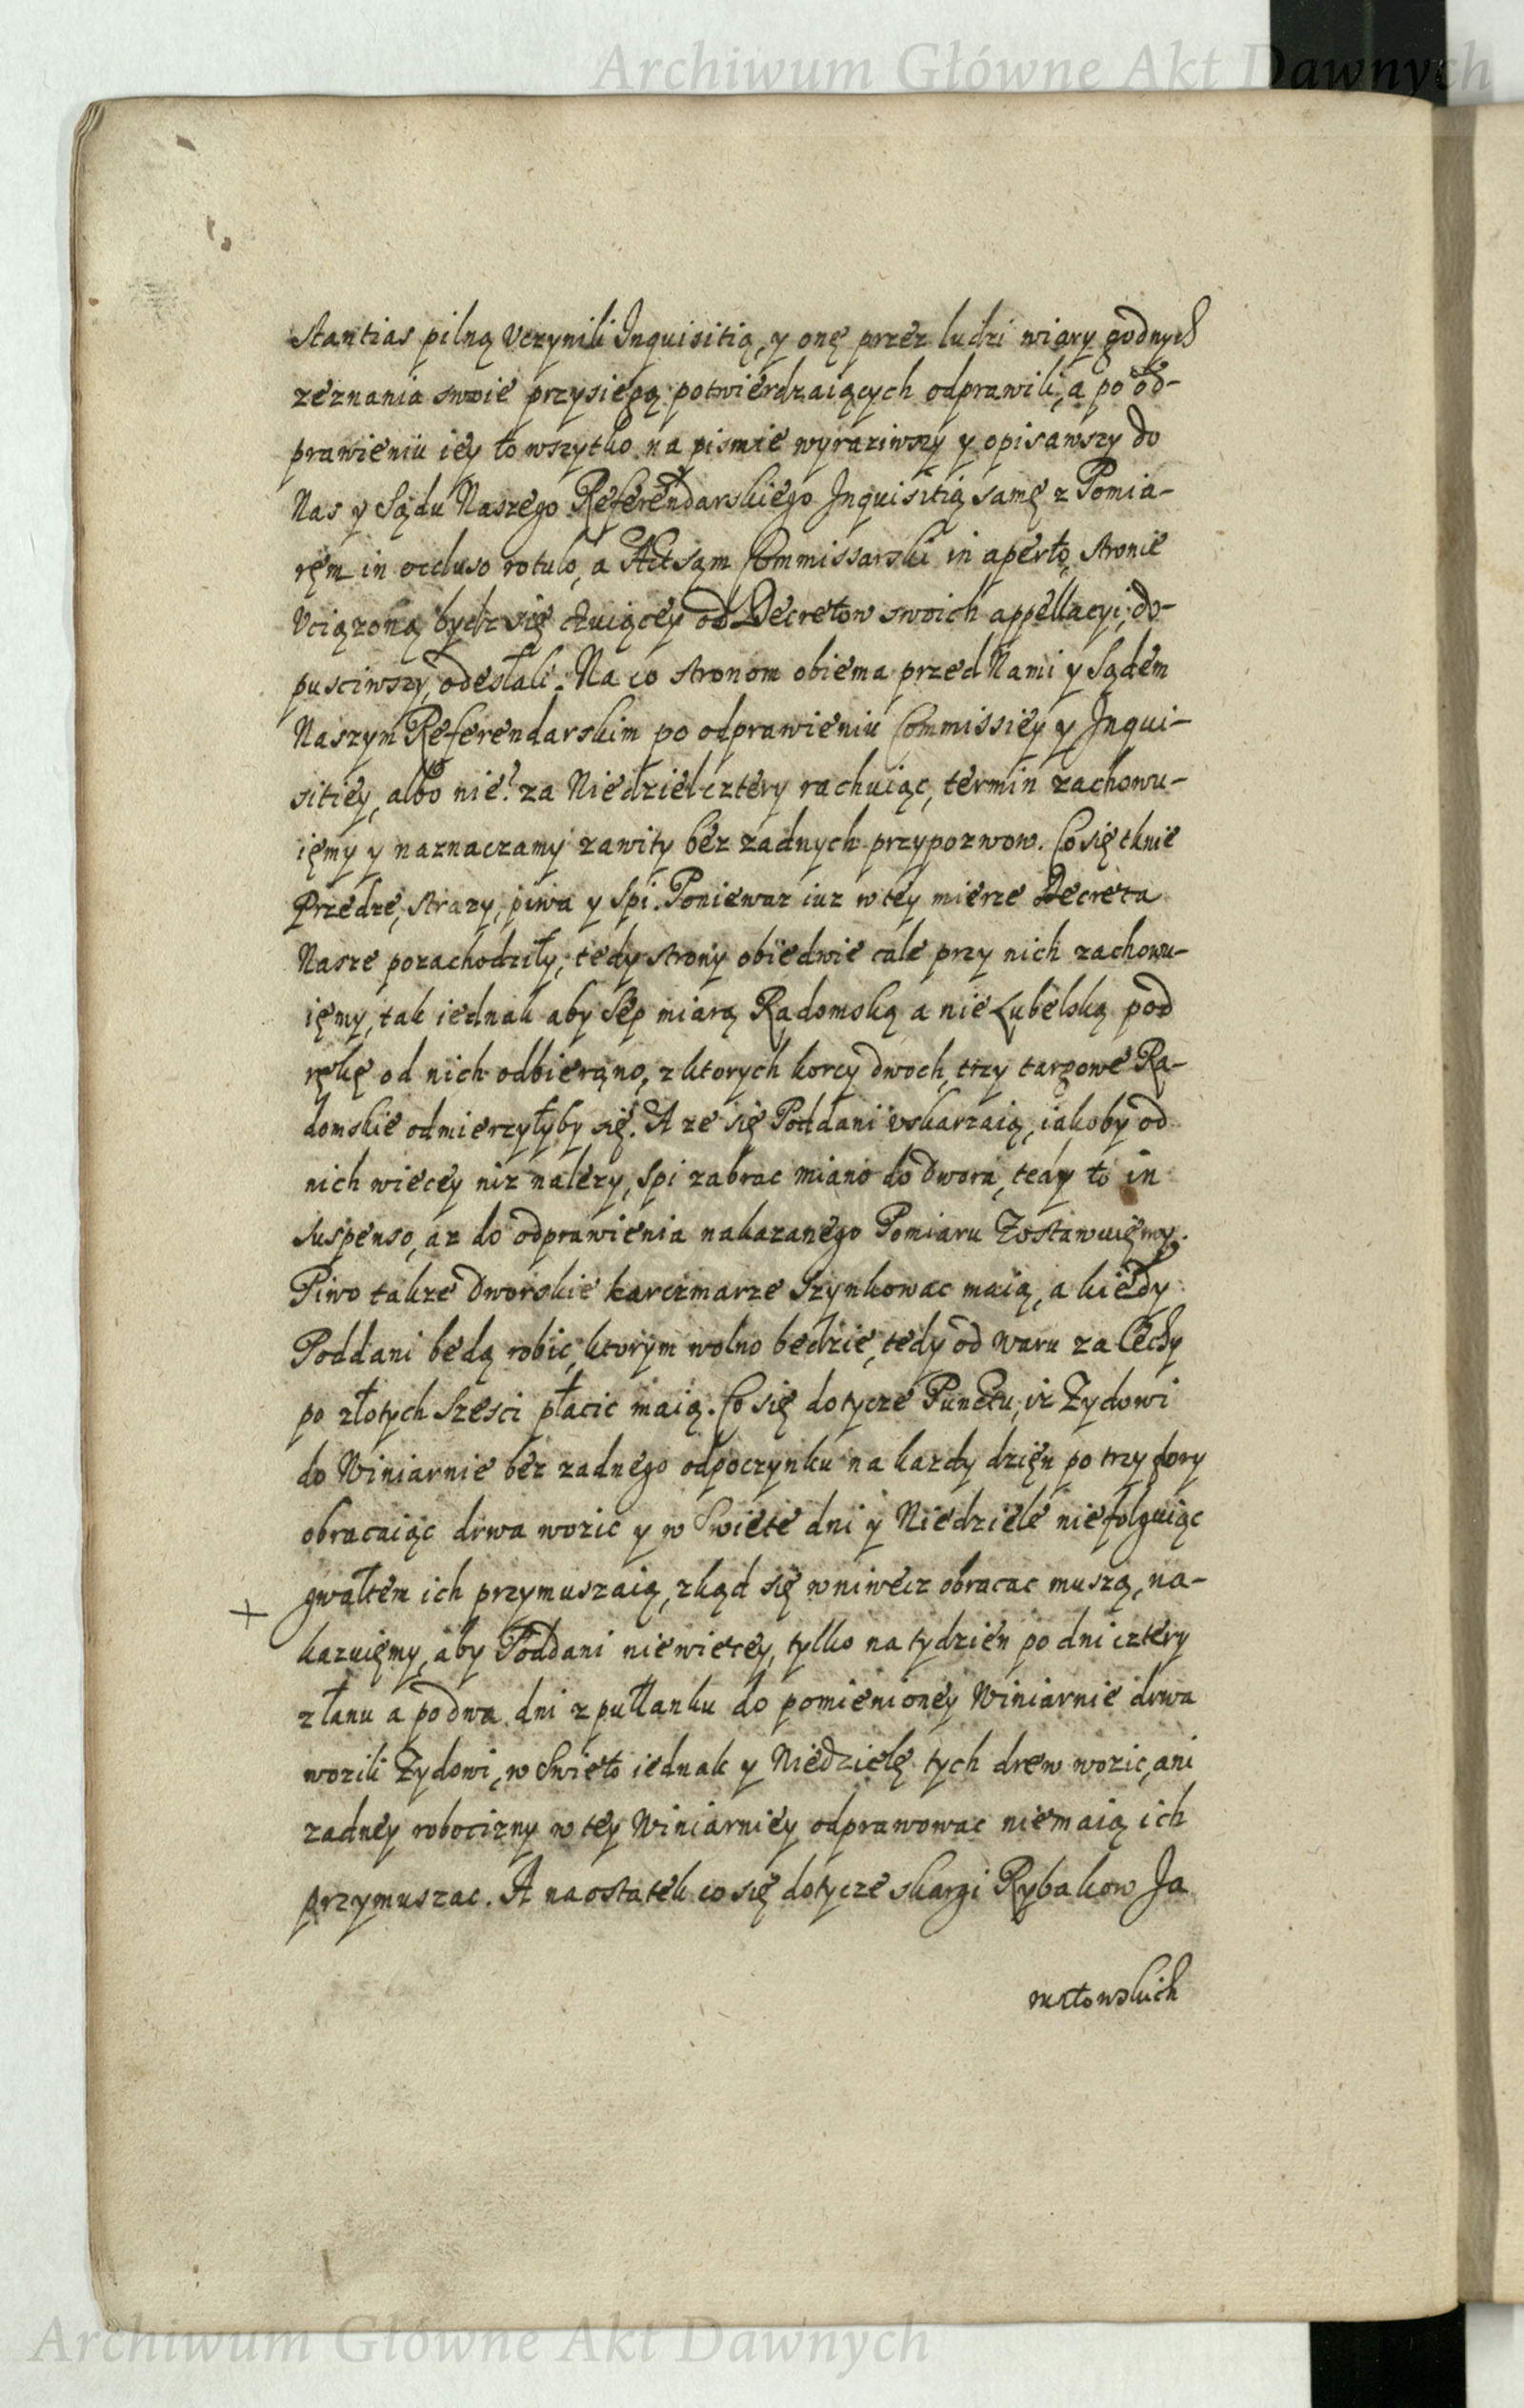 Archiwum Główne Akt Dawnych
stantias pilną vczynili Inquisitią, y onę przez ludzi wiary godnych
zeznania swoie przysięgą potwierdzaiących odprawili, a po od-
prawieniu iey to wszytko na pismie wyraziwszy y opisawszy do
Nas y Sądu Naszego Referendarskiego Inquisitią samę z Pomia-
ręm in occluso rotulo, a Akt sąm Commissarski in aperto, stronie
Vciązoną bydz się czuiącey od Decretow swoich appellacyi, do-
pusciwszy, odesłali. Na co stronom obiema przed Nami y Sądem
Naszym Referendarskim po odprawieniu Commissiey y Inqui-
sitiey, albo nie? za Niedziel cztery rachuiąc, termin zachowu-
ięmy y naznaczamy zawity bez zadnych przypozwow. Co się tknie
Przędze, strazy, piwa y Spi. Poniewaz iuz w tey mierze Decreta
Nasze pozachodziły, tedy strony obiedwie cale przy nich zachowu-
ięmy, tak iednak aby Sep miarą Radomską a nie Lubelską pod
rękę od nich odbierąno, z ktorych korcy dwoch, trzy targowe Ra-
domskie odmierzyłyby się. A ze się Poddani vskarzaią, iakoby od
nich wiecey niz nalezy, Spi zabrac miano do Dwora, tedy to in
suspenso, az do odprawienia nakazanego Pomiaru Zostawuięmy.
Piwo takze Dworskie karczmarze Szynkowac maią, a kiedy
Poddani będą robic, ktorym wolno będzie, tedy od waru za Cechy
po złotych Szesci płacic maią. Co się dotycze Punctu, iz Zydowi
do Winiarnie bez zadnego odpoczynku na kazdy dzięn po trzy fory
obracaiąc drwa wozic y w Swięte dni y Niedziele nie folguiąc
gwałtem ich przymuszaią, zkąd się wniwecz obracac muszą, na-
+
kazuięmy, aby Poddani nie wiecey, tylko na tydzien po dni cztery
z łanu a po dwa dni z pułłanku do pomienioney Winiarnie drwa
wozili Zydowi, w Swięto iednak y Niedzielę tych drew wozic, ani
zadney robocizny w tey Winiarniey odprawowac nie maią ich
przymuszac. A na ostatek co się dotycze skargi Rybakow Ja
nustowskich
Archiwum Główne Akt Dawnych